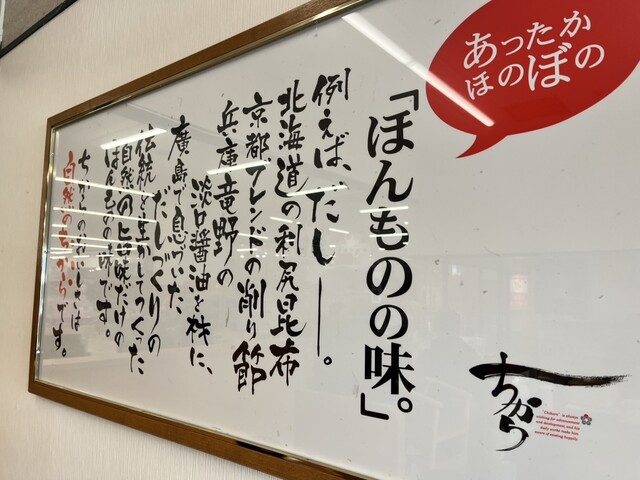 あったか
ほのぼの
「ほんものの味。」
例えば、だし――。
北海道の利尻昆布
京都ブレンドの削り節
兵庫竜野の
淡口醤油を株に、
廣島で息づいた
だしづくりの
伝統を生かしてつくった
自然の旨味だけの
ほんものの味です。
ちからのおいしさは
自然のちからです。
ちから
"Chikara" is always